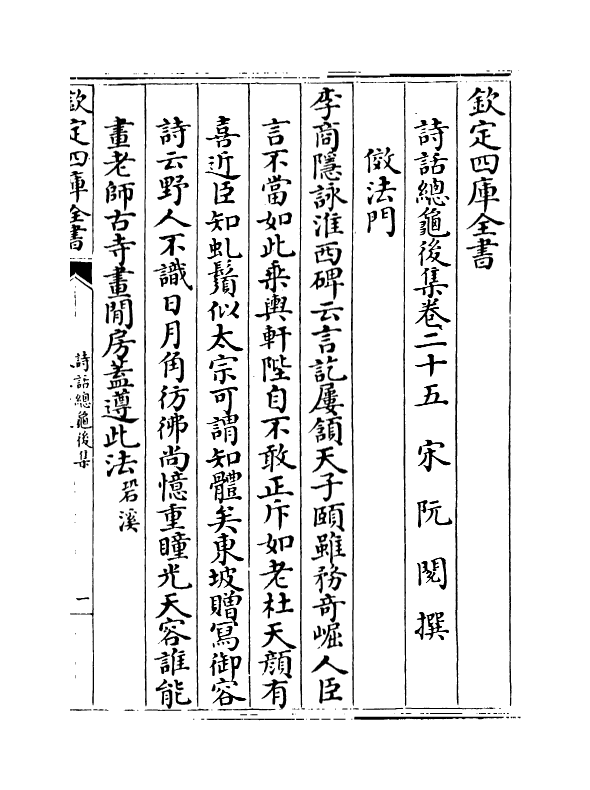 欽定四庫全書
詩話總龜後集卷二十五　宋　阮　閱　撰
倣法門
李商隱詠淮西碑云言訖屢頷天子頤雖務奇崛人臣
言不當如此乘輿軒陛自不敢正斥如老杜天顔有
喜近臣知虬鬚似太宗可謂知體矣東坡贈寫御容
詩云野人不識日月角彷彿尚憶重瞳光天容誰能
畫老師古寺畫閒房蓋遵此法䂬溪
欽定四庫全書
詩話總龜後集
一